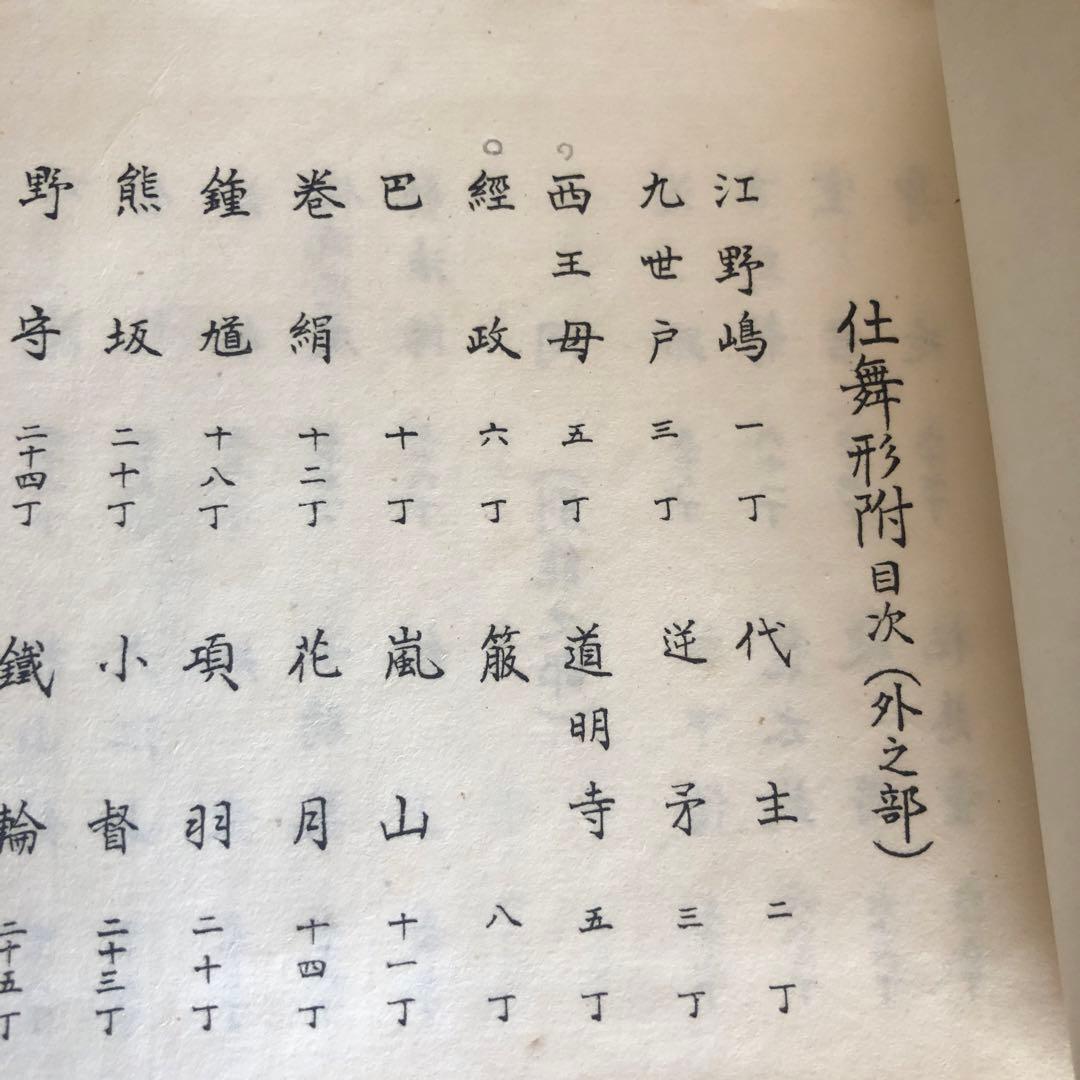 仕舞形附目次(外之部)
江野嶋 一丁 代主 二丁
九世戸 三丁 逆矛 三丁
西王母 五丁 道明寺 五丁
經政 六丁 箙 八丁
巴 十丁 嵐山 十一丁
巻絹 十二丁 花月 十四丁
鍾馗 十八丁 項羽 二十丁
熊坂 二十丁 小督 二十三丁
野守 二十四丁 鐵輪 二十五丁